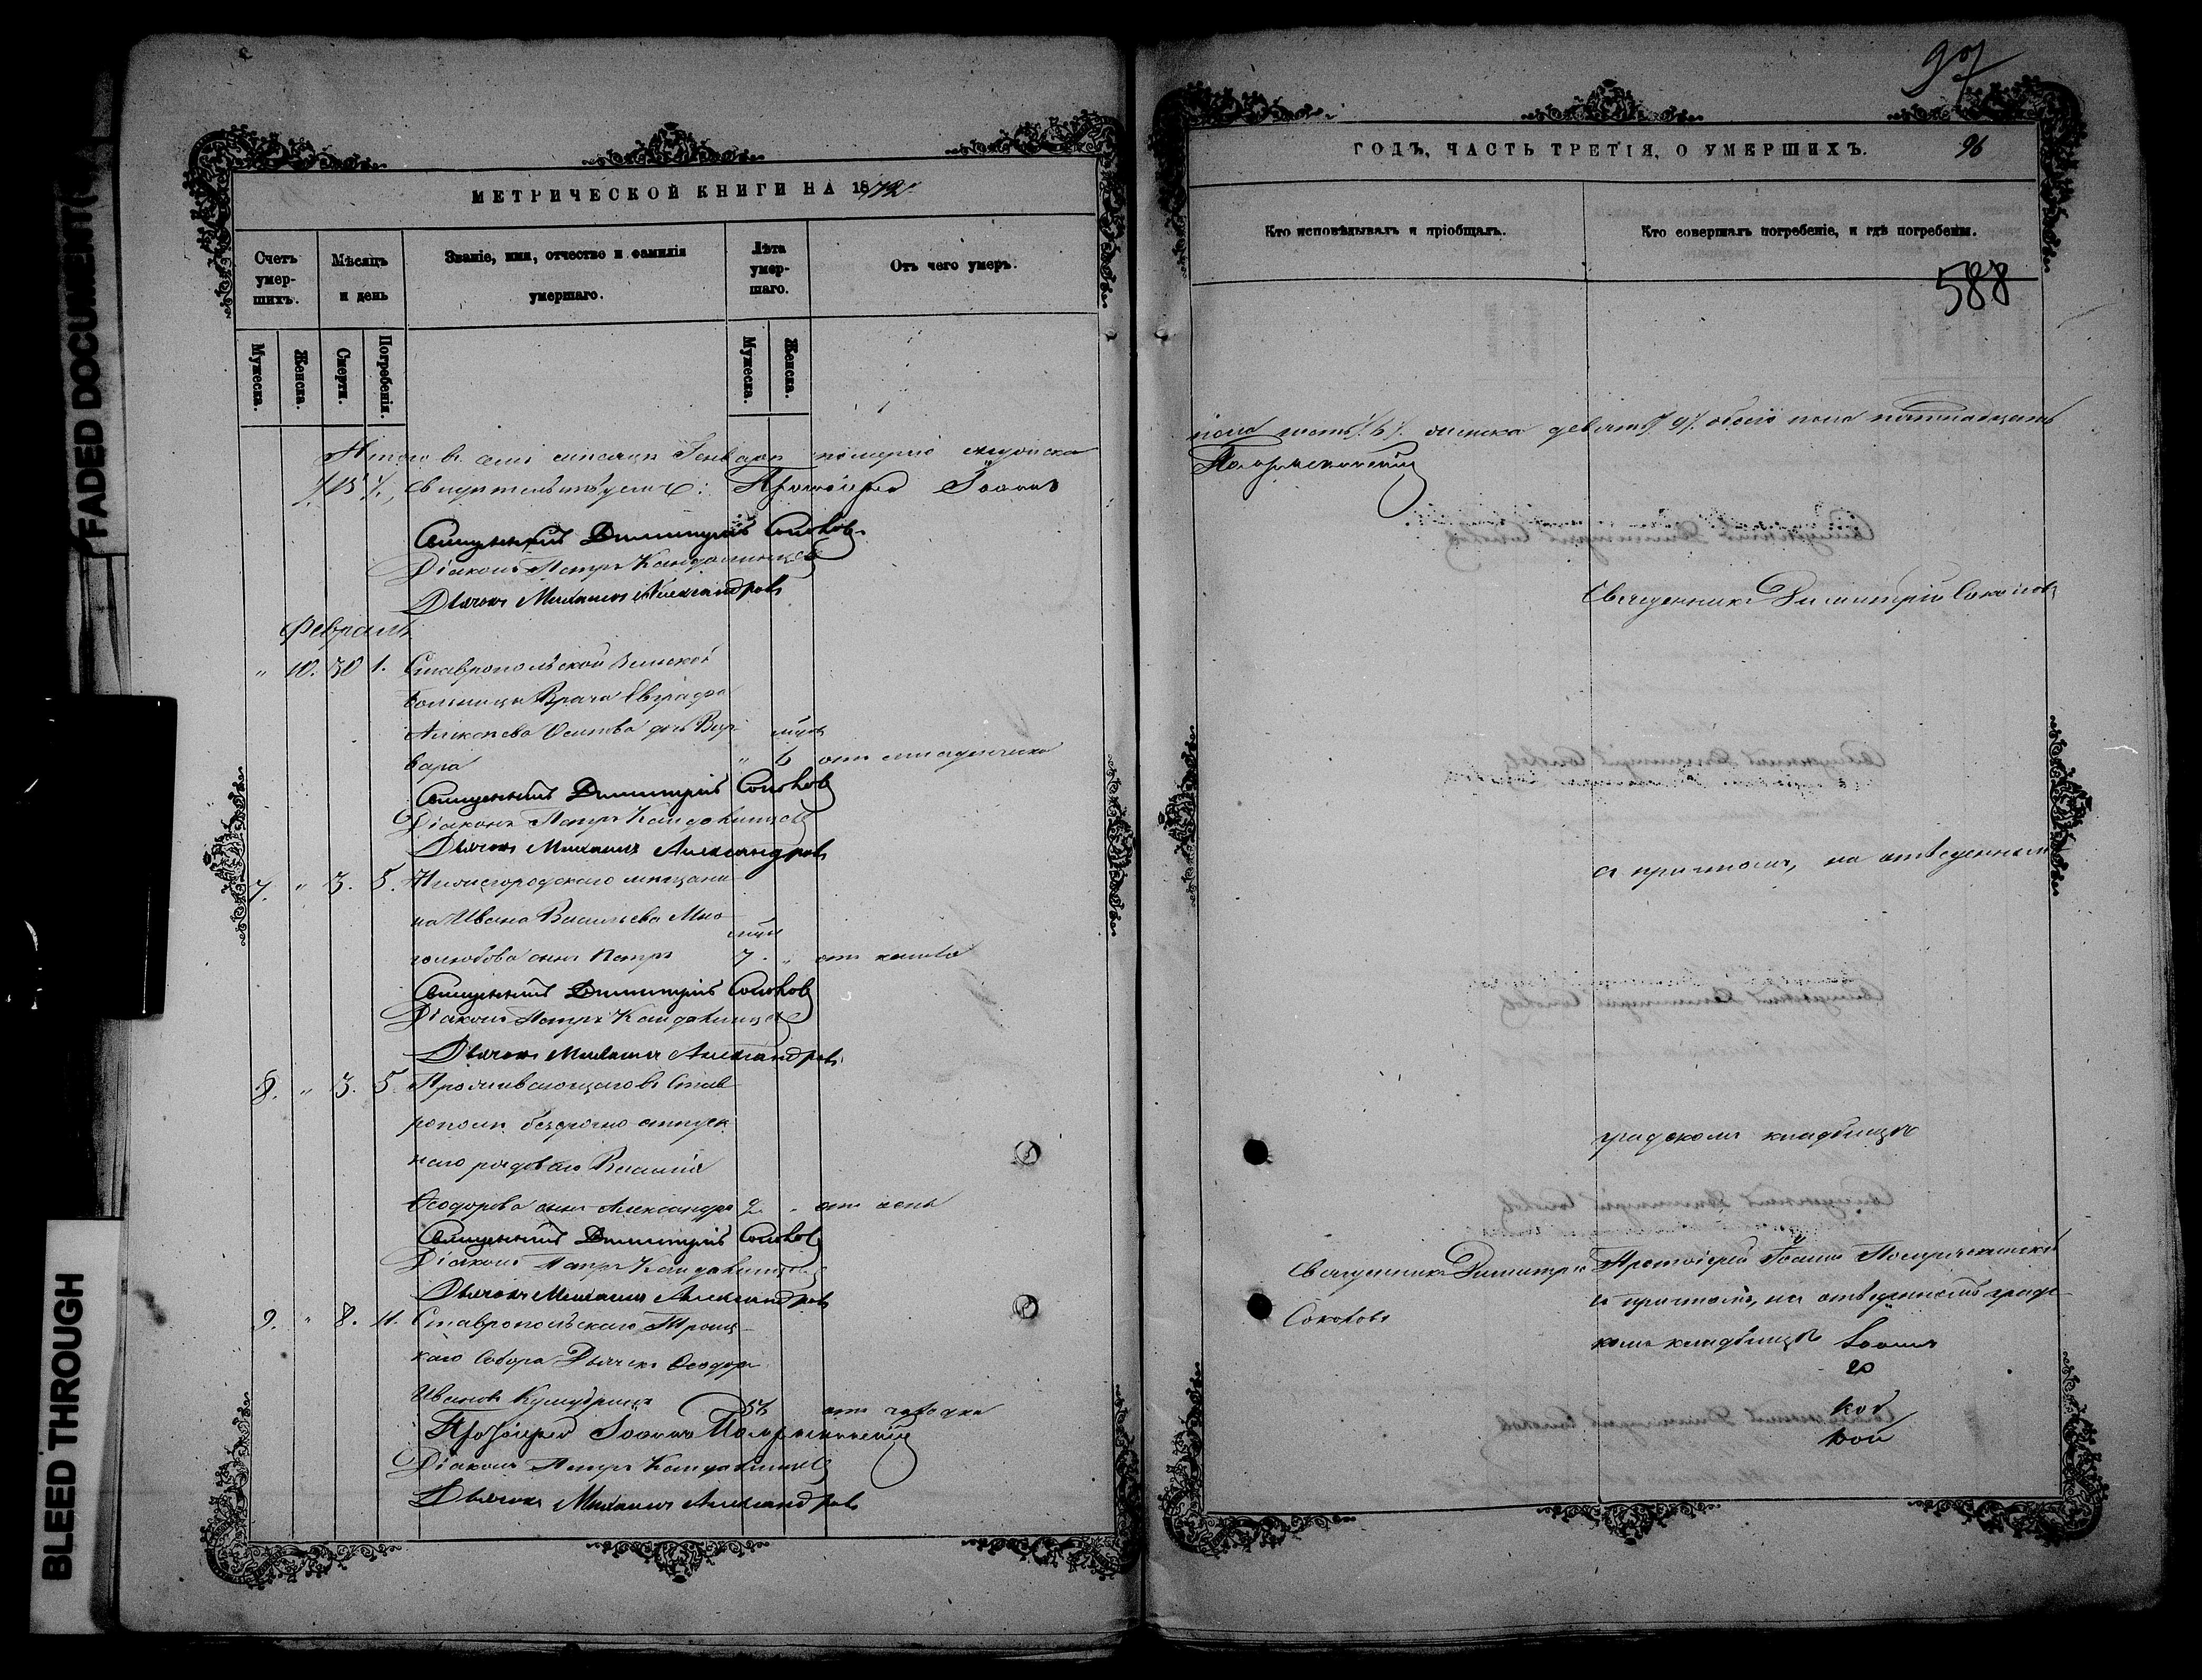 FADED DOCUMENT(
BLEED THROUGH
МЕТРИЧЕСКОЙ КНИГИ НА 1872
Счетъ умер- шихъ.
Мѣсяцъ и день
Званіе, имя, отчество и фамилія умершаго.
Лѣта умер- шаго.
Отъ чего умеръ.
Мужеска.
Женска.
Смерти.
Погребенія.
Мужеска.
Женска.
Итого въ семъ мѣсяцѣ Генварѣ померло мужеска
/15/, свидѣтельствуемъ: Протоіерей Іоаннъ
Священникъ Димитрій Соколов
Діаконъ Петръ
Дьячекъ Михаилъ Александровъ
Февраль
" 10. 30 1. Ставропольской Земской
больницы Врача Евграфа
Алексѣева Осипова дочь Вар-
вара " 6 отъ младенческой
Священникъ Димитрій Соколов
Діаконъ Петръ
Дьячекъ Михаилъ Александровъ
7. " 3. 5. Нижегородскаго мѣщани-
на Ивана Васильева Мно-
голюбова сынъ Петръ 7. " отъ кашля
Священникъ Димитрій Соколов
Діаконъ Петръ
Дьячекъ Михаилъ Александровъ
8. " 3. 5. Проживающаго въ Став-
рополѣ безсрочно отпуск-
наго рядоваго Василія
Ѳеодорова сынъ Александръ 2. " отъ оспы
Священникъ Димитрій Соколов
Діаконъ Петръ
Дьячекъ Михаилъ Александровъ
9. " 8. 11. Ставропольскаго Троиц-
каго Собора Дьячекъ Ѳеодоръ
Ивановъ 56 отъ чахотки
Протоіерей Іоаннъ
Діаконъ Петръ
Дьячекъ Михаилъ Александровъ
97
ГОДЪ, ЧАСТЬ ТРЕТІЯ, О УМЕРШИХЪ. 96
Кто исповѣдывалъ и пріобщалъ.
Кто совершалъ погребеніе, и гдѣ погребены.
588
пола шесть /6/. женска девять /9/. обоего пола пятнадцать
Священникъ Димитрій Соколовъ
съ причтомъ, на отведенномъ
градскомъ кладбищѣ
Священникъ Димитрій
Соколовъ
Протоіерей Іоаннъ
съ причтомъ, на отведенномъ градс-
комъ кладбищѣ